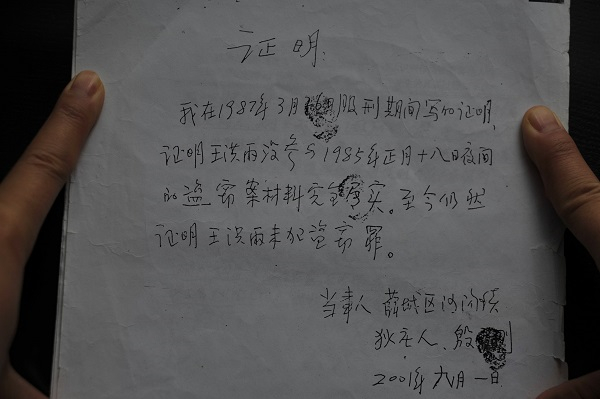 证明
我在1987年3月 服刑期间写的证明,
证明王洪雨没参与1985年正月十八日夜间
的盗窃案材料完全属实。至今仍然
证明王洪雨未犯盗窃罪。
当事人 薛城区
人、殷
2001年 月一日